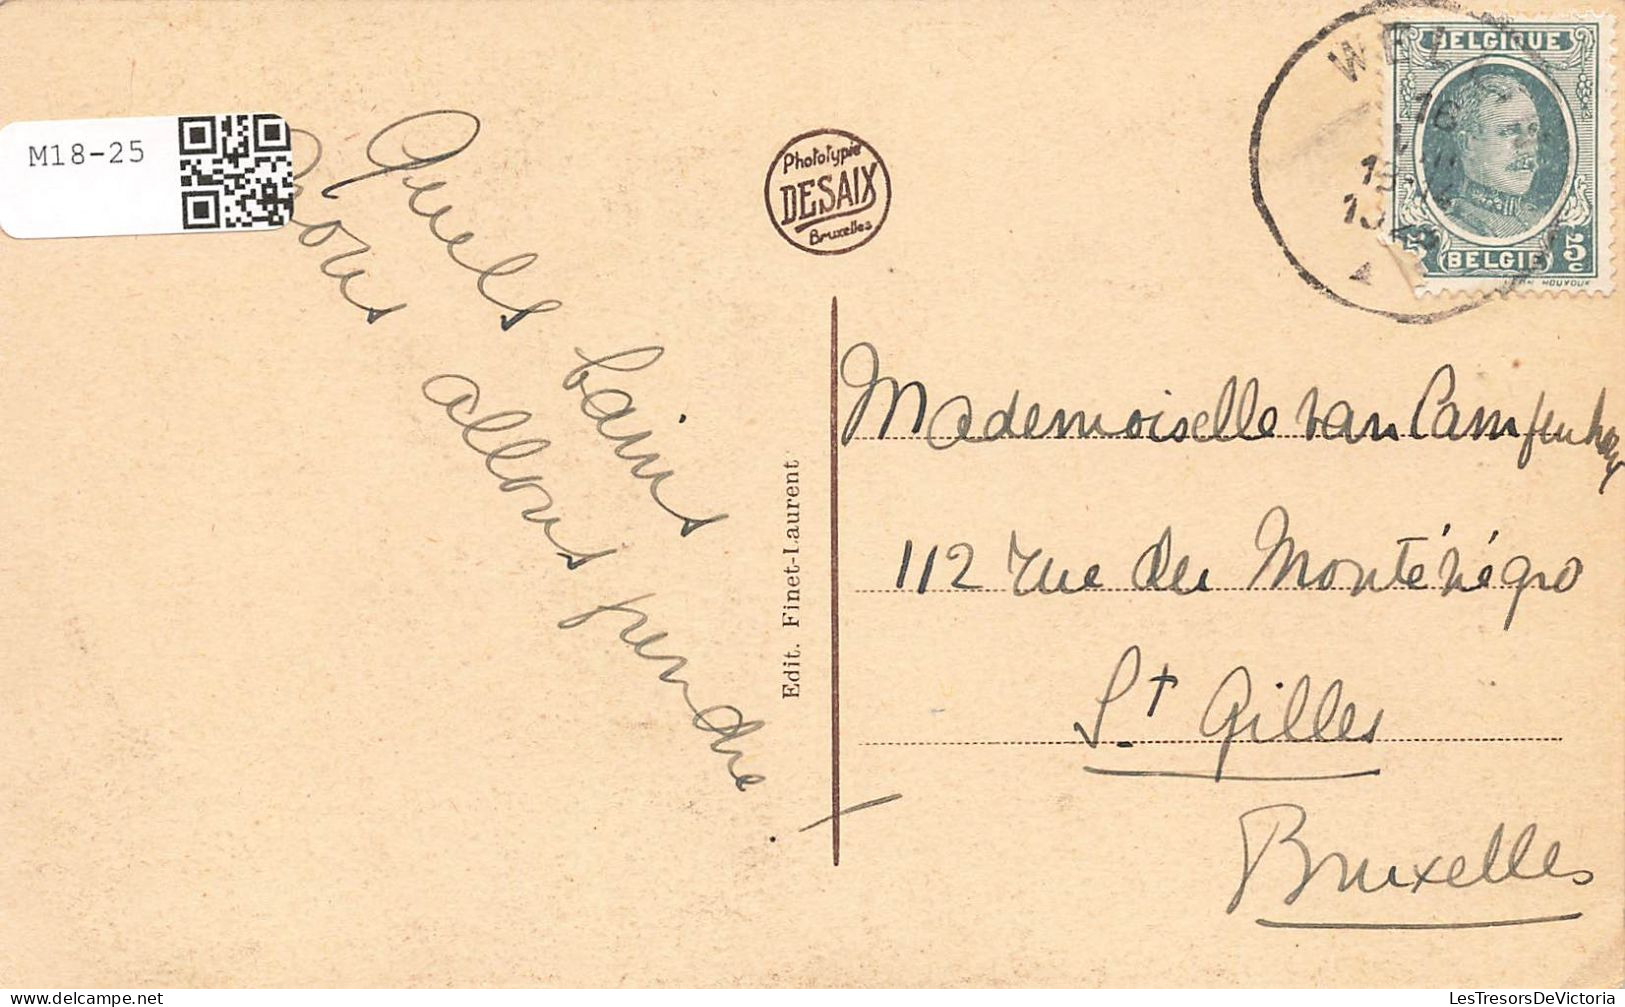 M18-25
Quels bains
Nous allons prendre
Phototypie
DESAIX
Bruxelles
Edit. Finet-Laurent
BELGIQUE
5
BELGIE
5
c
Mademoiselle van
112 rue du Monténégro
St Gilles
Bruxelles
LesTresorsDeVictoria